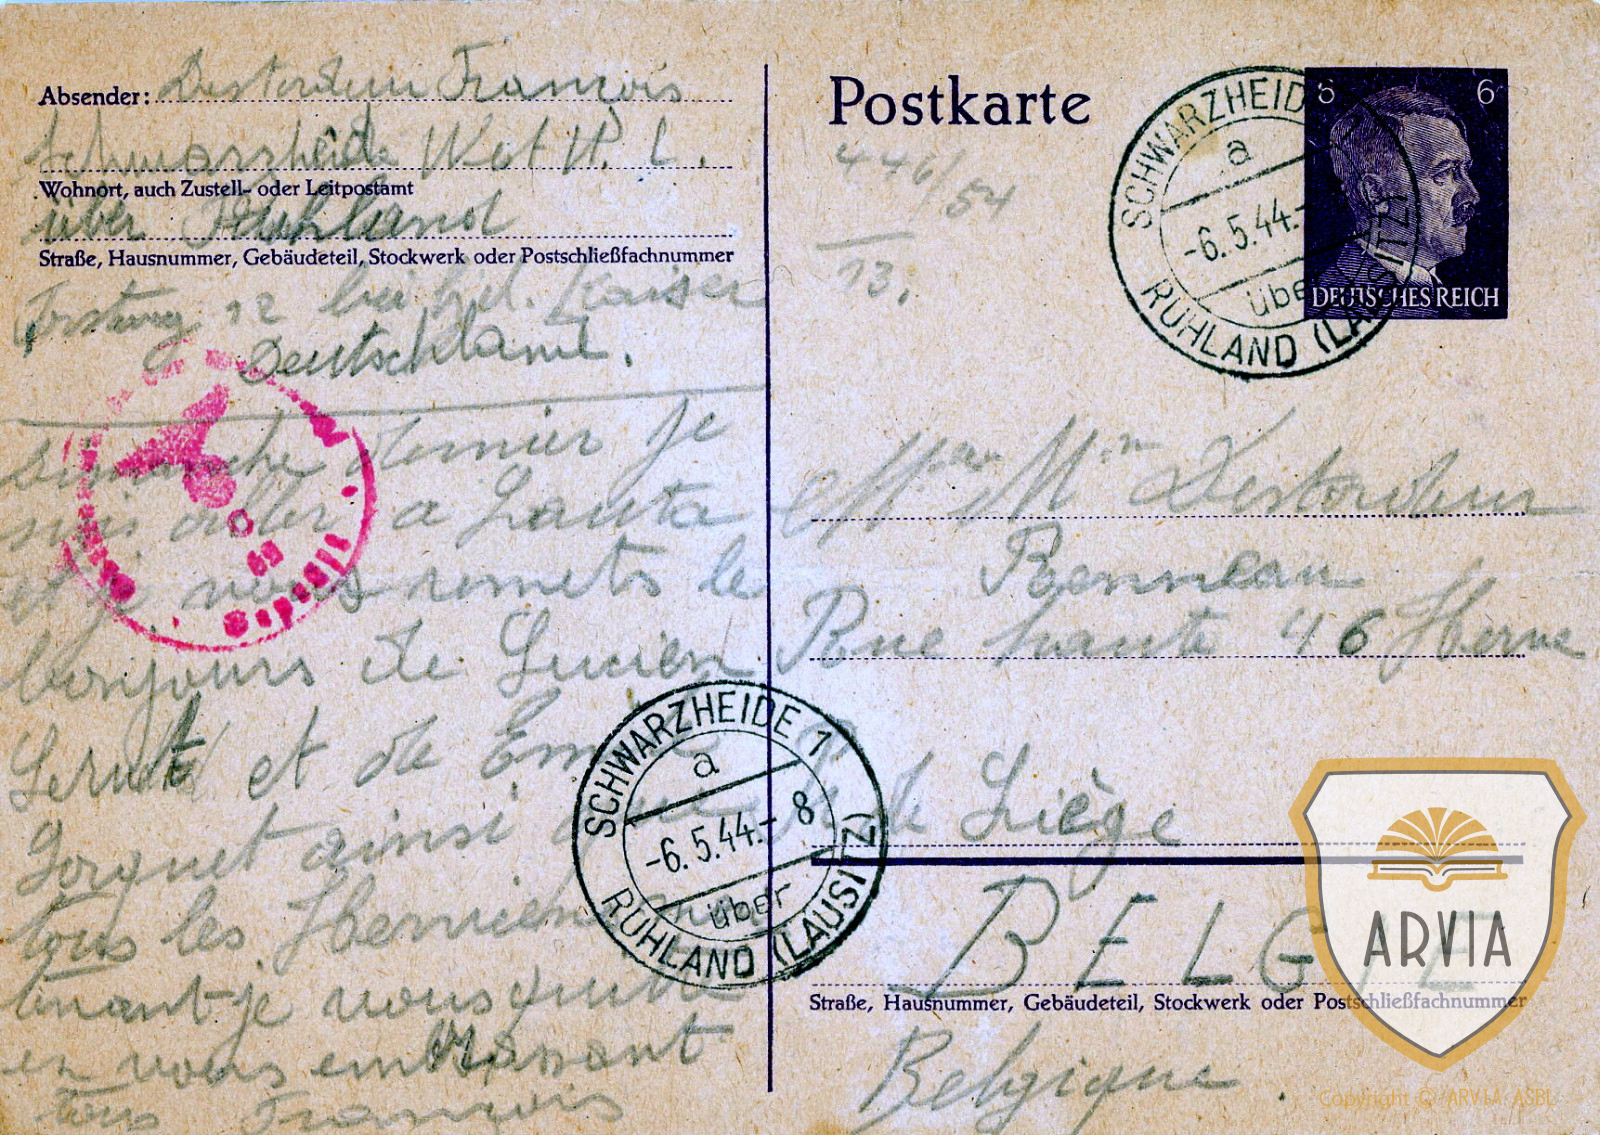 Absender: Destordeur François
Schwarzheide West H. L.
Wohnort, auch Zustell- oder Leitpostamt
über Ruhland
Straße, Hausnummer, Gebäudeteil, Stockwerk oder Postschließfachnummer
12 bei Kaiser
Deutschland.
Dimanche dernier je
suis aller a Lauta
et je vous remets le
bonjours de Lucien
et de
Gorquet ainsi
tous les
je vous quitte
en vous embrassant
tous François
Postkarte
446/54
13.
SCHWARZHEIDE
a
-6.5.44.-
über
RUHLAND (LAUSITZ)
6 6
DEUTSCHES REICH
Mr Destordeur
Renneau
Rue haute 46 Herve
de Liège
BELGIE
Straße, Hausnummer, Gebäudeteil, Stockwerk oder Postschließfachnummer
Belgique
SCHWARZHEIDE 1
a
-6.5.44.- 8
über
RUHLAND (LAUSITZ)
ARVIA
Copyright © ARVIA ASBL